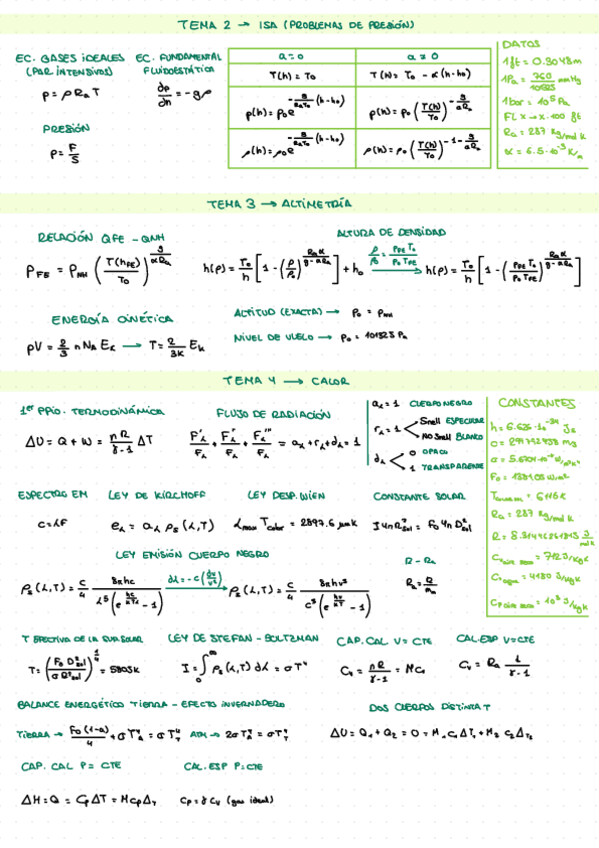 TEMA 2 → ISA (PROBLEMAS DE PRESIÓN)
EC. GASES IDEALES (PAR. INTENSIVOS)
p = ρ Ra T
EC. FUNDAMENTAL FLUIDOESTÁTICA
∂p/∂h = -gρ
PRESIÓN
P = F/S
α = 0
α ≠ 0
T(h) = T₀
T(h) = T₀ - α(h-h₀)
p(h) = p₀ e^(-g/(RaT₀) (h-h₀))
p(h) = p₀ (T(h)/T₀)^(-g/(αRa))
ρ(h) = ρ₀ e^(-g/(RaT₀) (h-h₀))
ρ(h) = ρ₀ (T(h)/T₀)^(-1-g/(αRa))
DATOS
1 ft = 0.3048m
1Pa = 760/101325 mmHg
1bar = 10⁵ Pa
FL X → X·100 ft
Ra = 287
α = 6.5·10⁻³ K/m
TEMA 3 → ALTIMETRÍA
RELACIÓN QFE - QNH
P_FE = P_NH (T(h_FE)/T₀)^(g/(αRa))
ALTURA DE DENSIDAD
h(ρ) = T₀/h [1 - (ρ/ρ₀)^(Raα/(g-αRa))] + h₀
ρ/ρ₀ = P_FE T₀/(P₀ T_FE)
h(ρ) = T₀/h [1 - (P_FE T₀/(P₀ T_FE))^(Raα/(g-αRa))]
ENERGÍA CINÉTICA
pV = 2/3 n N_A E_K → T = 2/3K E_K
ALTITUD (EXACTA) → P₀ = P_NH
NIVEL DE VUELO → P₀ = 101325 Pa
TEMA 4 → CALOR
1er PPIO. TERMODINÁMICA
ΔU = Q + W = nR/(γ-1) ΔT
FLUJO DE RADIACIÓN
F'λ/Fλ + F''λ/Fλ + F'''λ/Fλ = aλ + rλ + dλ = 1
aλ = 1 CUERPO NEGRO
rλ = 1 Snell ESPECULAR
NO Snell BLANCO
dλ 0 OPACO
1 TRANSPARENTE
CONSTANTES
h = 6.626·10⁻³⁴ Js
F₀ =
Ra = 287
R =
ESPECTRO EM
c = λF
LEY DE KIRCHOFF
eλ = aλ ρs(λ,T)
LEY DESP. WIEN
λmax Tcolor = 2897.6 µmK
CONSTANTE SOLAR
I 4π R²sol = F₀ 4π D²sol
LEY EMISIÓN CUERPO NEGRO
ρs(λ,T) = c/4 8πhc/(λ⁵(e^(hc/(λKT)) - 1))
dλ = -c(dν/ν²)
ρs(λ,T) = c/4 8πhν³/(c³(e^(hν/(KT)) - 1))
R - Ra
Ra = R/m
T EFECTIVA DE LA SUP. SOLAR
T = (F₀ D²sol/(σ R²sol))^(1/4) = 5803K
LEY DE STEFAN - BOLTZMAN
I = ∫₀^∞ ρs(λ,T) dλ = σT⁴
CAP. CAL V = CTE
Cv = nR/(γ-1) = MCv
CAL. ESP V=CTE
Cv = Ra 1/(γ-1)
BALANCE ENERGÉTICO TIERRA - EFECTO INVERNADERO
TIERRA → F₀(1-a)/4 + σT⁴_A = σT⁴_T
ATM → 2σT⁴_A = σT⁴_T
DOS CUERPOS DISTINTA T
ΔU = Q₁ + Q₂ = 0 = M₁c₁ΔT₁ + M₂c₂ΔT₂
CAP. CAL P = CTE
ΔH = Q = CpΔT = MCpΔT
CAL. ESP P=CTE
Cp = γ Cv (gas ideal)